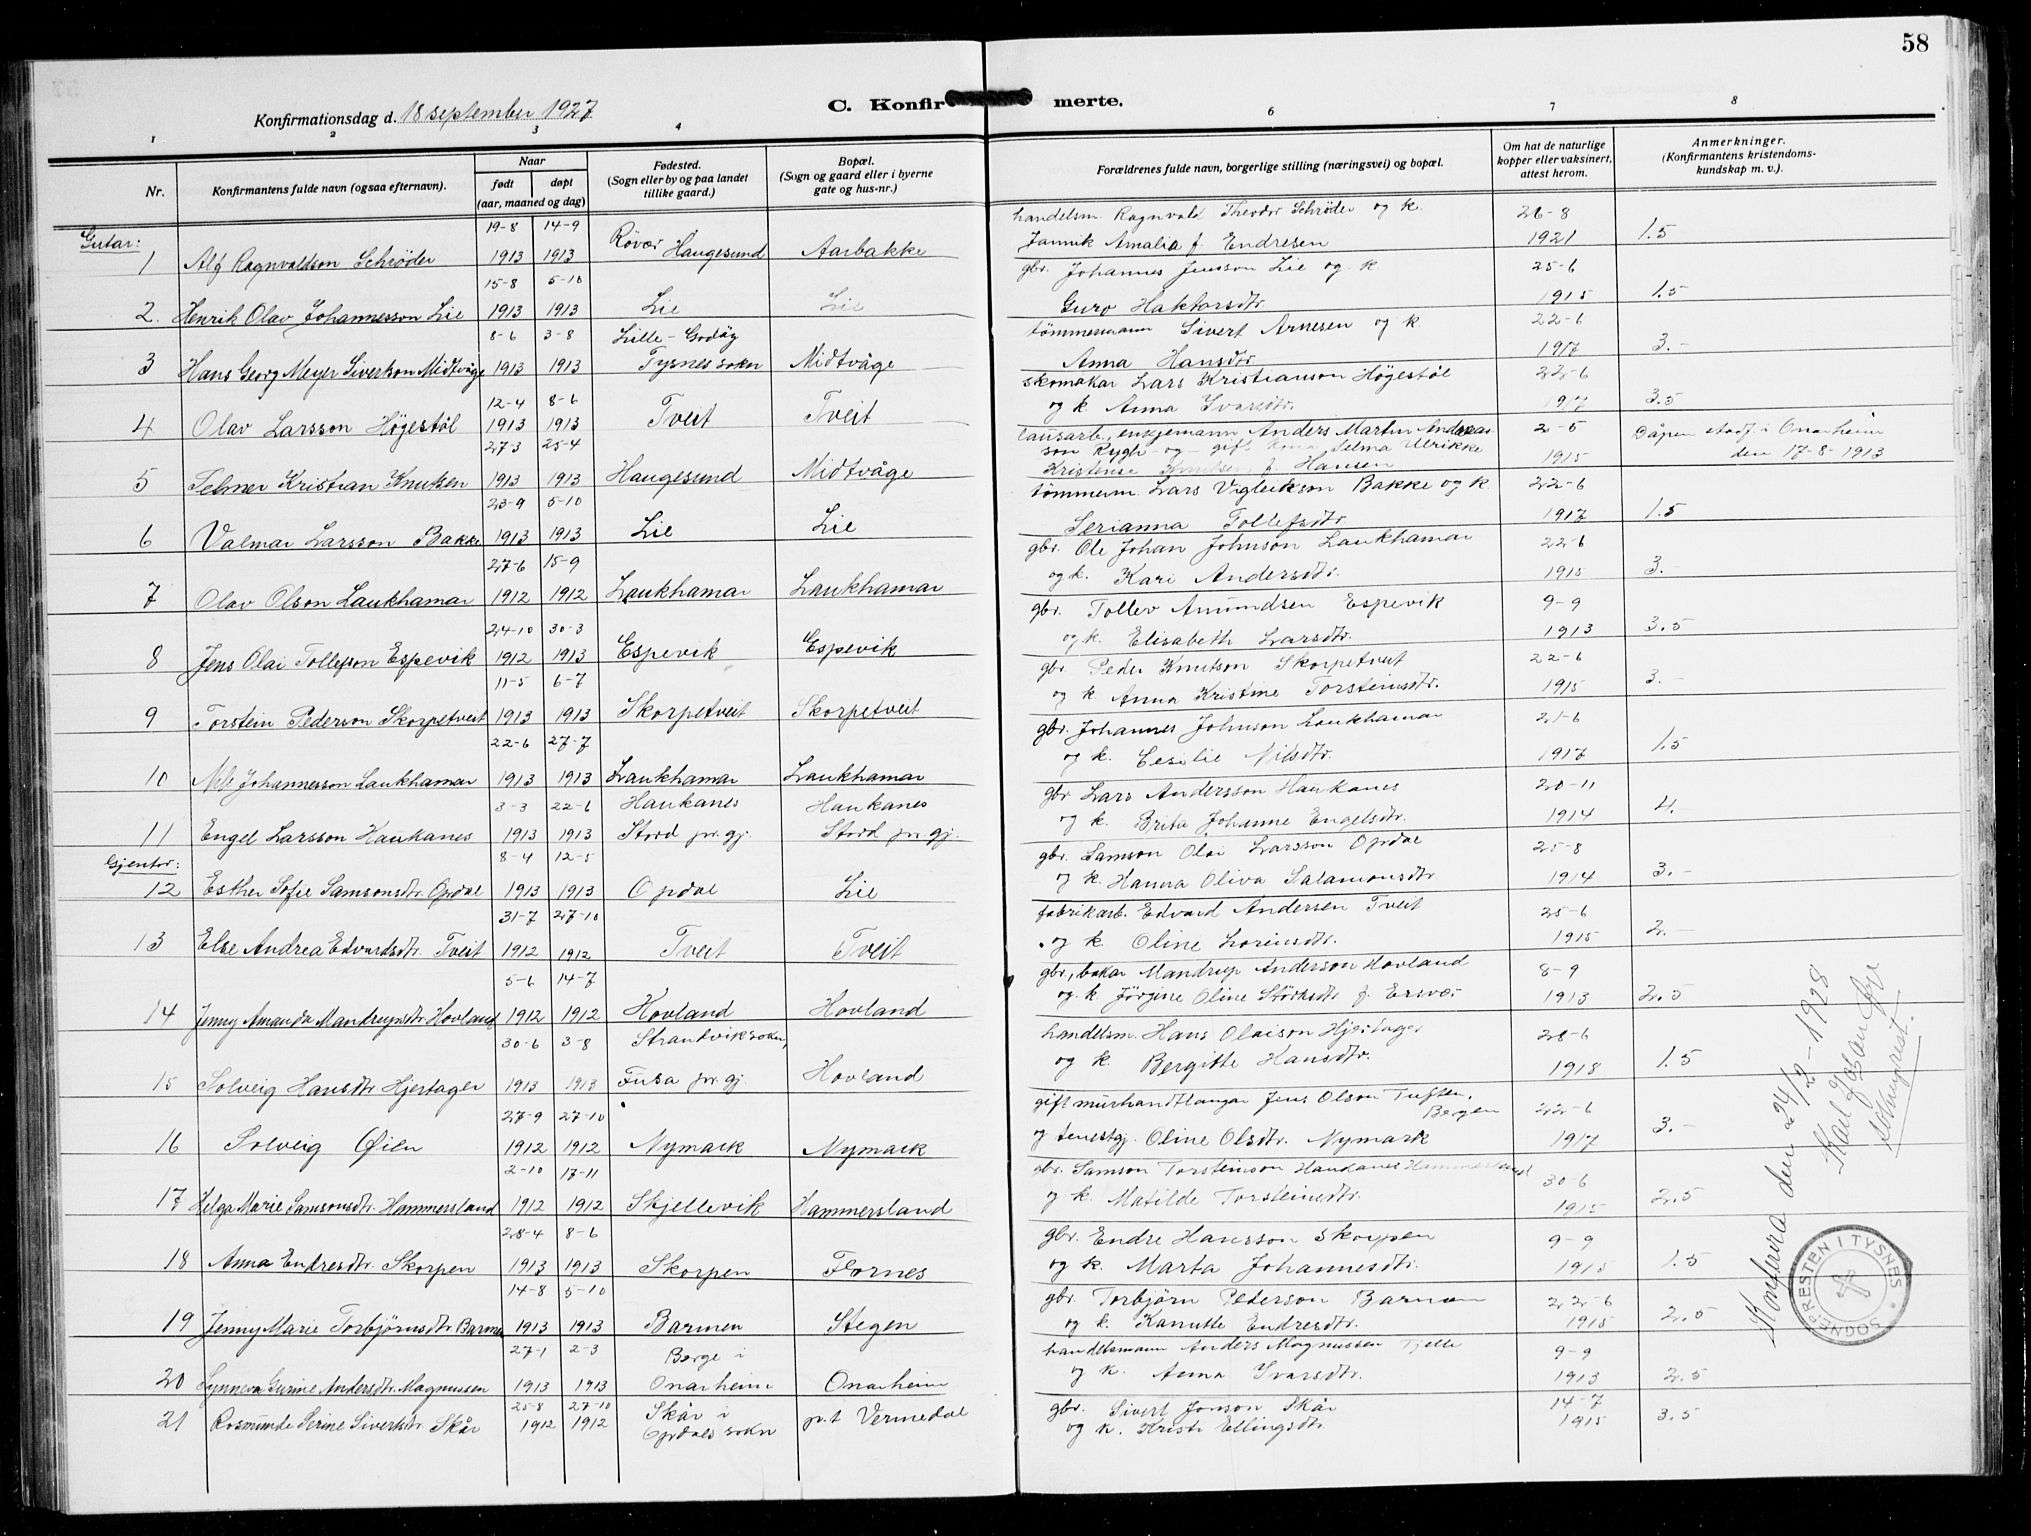 58
C. Konfirmerte.
Konfirmationsdag d. 18 september 1927
1 2 3 4 6 7 8
Nr.
Konfirmantens fulde navn (ogsaa efternavn).
Naar
født døpt
(aar, maaned og dag)
Fødested.
(Sogn eller by og paa landet
tillike gaard.)
Bopæl.
(Sogn og gaard eller i byerne
gate og hus-nr.)
Forældrenes fulde navn, borgerlige stilling (næringsvei) og bopæl.
Om hat de naturlige
kopper eller vaksinert,
attest herom.
Anmerkninger.
(Konfirmantens kristendoms-
kundskap m. v.).
Gutar:
19-8 14-9 handelsm. Ragnvald Theodor Schrøder og k. 26-8
1 Alf Ragnvaldson Schrøder 1913 1913 Røvær Haugesund Aarbakke Jannik Amalia f. Endresen 1921 1.5
15-8 5-10 gbr. Johannes Jensson Lie og k. 25-6
2. Henrik Olav Johannesson Lie 1913 1913 Lie Lie Guro Haktorsdtr. 1915 1.5
8-6 3-8 Lille-Godøy tømmermann Sivert Arnesen og k. 22-6
3 Hans Georg Meyer Sivertson Midtvåge 1913 1913 Tysnes sokn Midtvåge Anna Hansdtr. 1917 3.-
12-4 8-6 skomakar Lars Kristianson Høgestøl 22-6
4 Olav Larsson Høgestøl 1913 1913 Tveit Tveit og k. Anna Ivarsdtr. 1917 3.5
27-3 25-4 lausarb., enkjemann Anders Martin Andreas- 2-5 Dåpen stadf. i Onarheim
son Rygh og gift Selma Ulrikke
5 Selmer Kristian Knutsen 1913 1913 Haugesund Midtvåge Kristense Knutsen f. Hansen 1915 den 17-8-1913
23-9 5-10 tømmerm. Lars Vigleikson Bakke og k. 22-6
6 Valmar Larsson Bakke 1913 1913 Lie Lie Serianna Tollefsdtr 1917 1.5
27-6 15-9 gbr. Ole Johan Johnson Laukhamar 22-6
7 Olav Olson Laukhamar 1912 1912 Laukhamar Laukhamar og k. Kari Andersdtr. 1915 3.-
24-10 30-3 gbr. Tollev Amundsen Espevik 9-9
8 Jens Olai Tollefson Espevik 1912 1913 Espevik Espevik og k. Elisabeth Larsdtr. 1913 3.5
11-5 6-7 gbr. Peder Knutson Skorpetveit 22-6
9 Torstein Pederson Skorpetveit 1913 1913 Skorpetveit Skorpetveit og k. Anna Kristine Torsteinsdtr. 1915 3.-
22-6 27-7 gbr. Johannes Johnson Laukhamar 21-6
10 Nils Johannesson Laukhamar 1913 1913 Laukhamar Laukhamar og k. Cesilie Nilsdtr. 1917 1.5
3-3 22-6 Haukanes Haukanes gbr. Lars Andersson Haukanes 20-11
11 Engel Larsson Haukanes 1913 1913 Stord pr. gj. Stord pr. gj. og k. Brita Johanne Engelsdtr. 1914 4.
Gjentor:
8-4 12-5 gbr. Samson Olai Larsson Opdal 25-8
12 Esther Sofie Samsonsdtr. Opdal 1913 1913 Opdal Lie og k. Hanna Oliva Salamonsdtr 1914 3.-
31-7 27-10 fabrikarb. Edvard Andersen Tveit 25-6
13 Else Andrea Edvardsdtr. Tveit 1912 1912 Tveit Tveit og k. Oline Lorinsdtr. 1915 2.-
5-6 14-7 gbr., bakar Mandrup Anderson Hovland 8-9
14 Jenny Amanda Mandrupsdtr Hovland 1912 1912 Hovland Hovland og k. Jørgine Oline Størksdtr f. Ersvær 1913 2.5
30-6 3-8 Strandvik sokn, handelsm. Hans Olaison Hjertager 28-6
15 Solveig Hansdtr Hjertager 1913 1913 Fusa pr. gj. Hovland og k. Bergitte Hansdtr. 1918 1.5
27-9 27-10 gift murhandtlangar Jens Olson Tuften, Bergen 22-6
16 Solveig Øien 1912 1912 Nymark Nymark og tenestgj. Oline Olsdtr. Nymark 1917 3.-
2-10 17-11 gbr. Samson Torsteinson Haukanes Hammersland 30-6
17 Helga Marie Samsonsdtr. Hammersland 1912 1912 Skjellevik Hammersland og k. Matilde Torsteinsdtr. 1915 2.5
28-4 8-6 gbr. Endre Hansson Skorpen 9-9
18 Anna Endresdtr. Skorpen 1913 1913 Skorpen Flornes og k. Marta Johannesdtr. 1915 1.5
14-8 5-10 gbr. Torbjørn Pederson Barmen 22-6
19 Jenny Marie Torbjørnsdtr Barmen 1913 1913 Barmen Stegen og k. Kanutte Endresdtr. 1915 2.5
27-1 2-3 Berge i handelsmann Anders Magnussen Tjelle 9-9
20 Synneva Gurine Andersdtr. Magnussen 1913 1913 Onarheim Onarheim og k. Anna Ivarsdtr. 1913 2.5
25-8 27-10 Skår i gbr. Sivert Jonson Skår 14-7
21 Rosmunde Serine Sivertsdtr. Skår 1912 1912 Opdals sokn p.t Vermedal og k. Kristi Ellingsdtr. 1915 3.5
Konfirera den 24/2-1928
sokneprest.
SOGNEPRESTEN I TYSNES